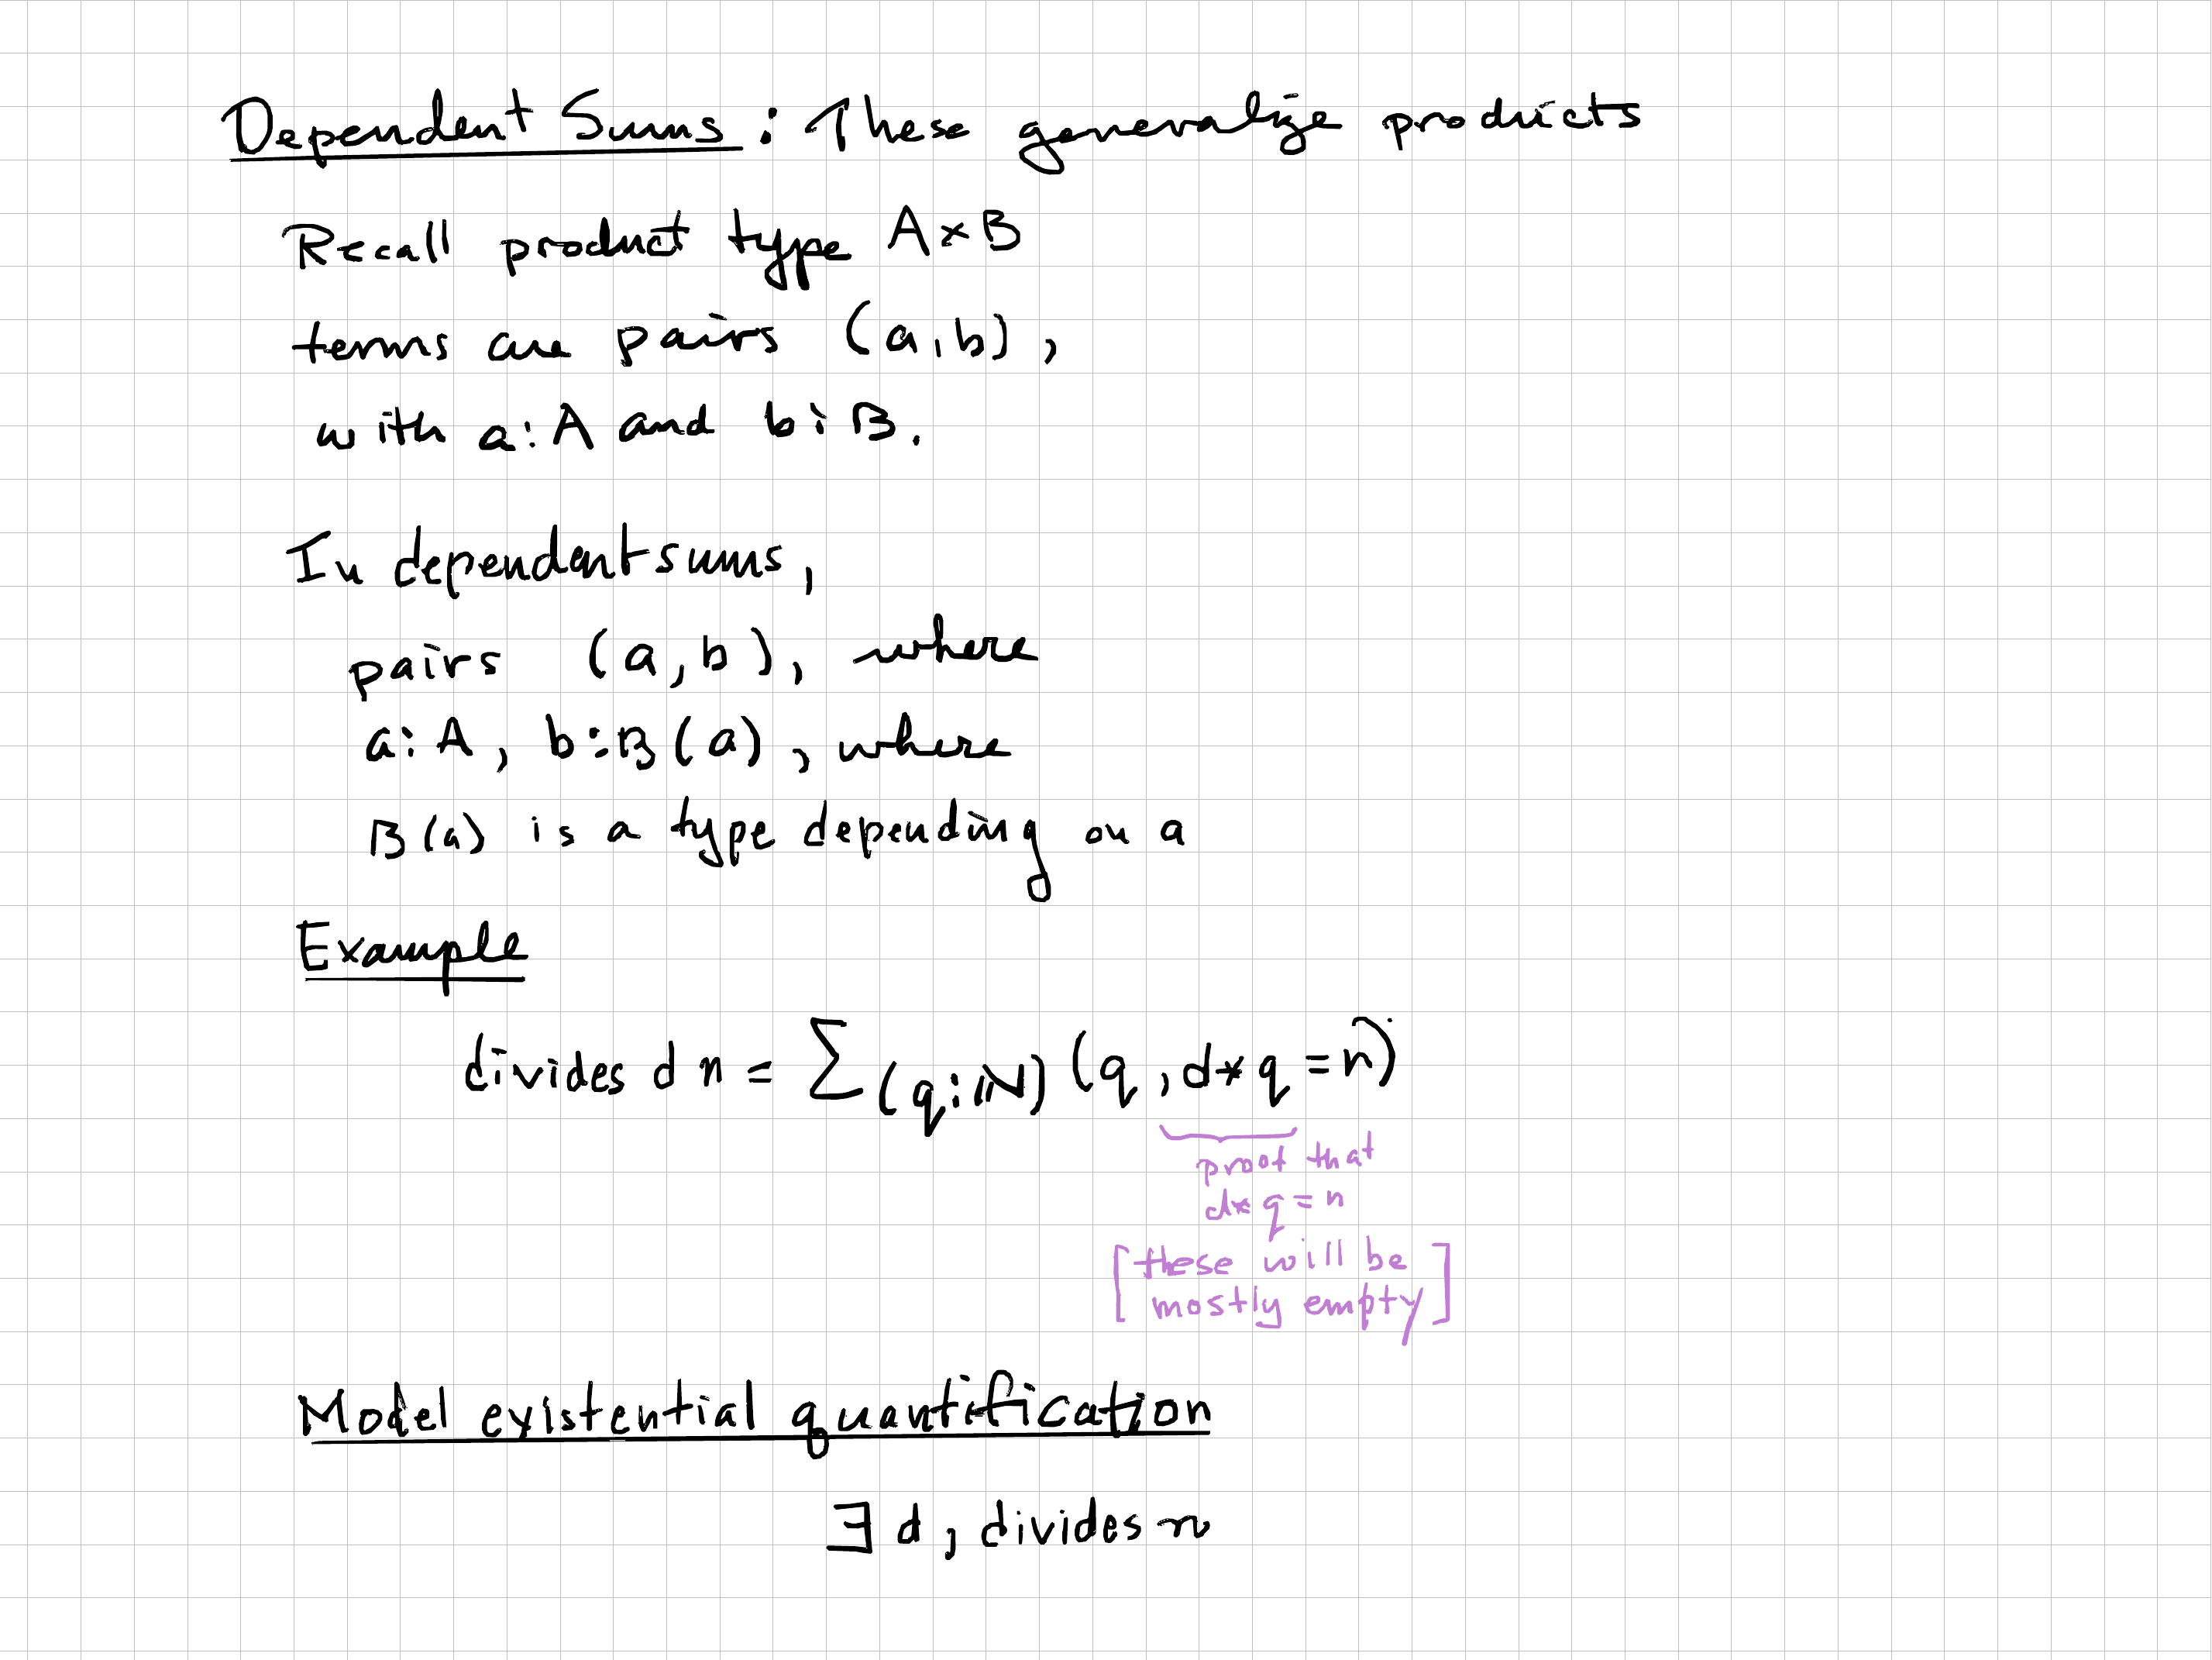 Dependent Sums : These generalize products
Recall product type A×B
terms are pairs (a,b),
with a:A and b:B.
In dependent sums,
pairs (a,b), where
a:A, b:B(a), where
B(a) is a type depending on a
Example
divides d n = ∑(q:ℕ) (q, d*q=n)
proof that
d*q=n
[these will be
mostly empty]
Model existential quantification
∃ d, divides n